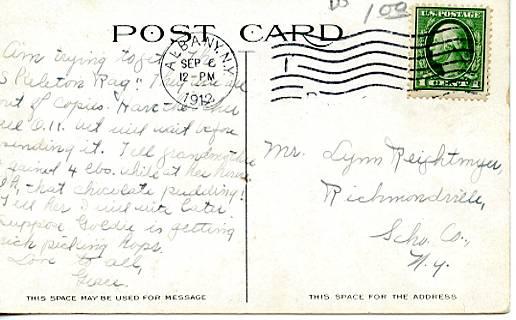 1.00
POST CARD
U.S. POSTAGE
ALBANY, N.Y.
SEP 6
12-PM
1912
Am trying to get
Skeleton Rag." They are
out of copies. Have the
will wait before
sending it. Tell grandmother
I gained 4 lbs. while at her house
Oh, that chocolate pudding!
Tell her I will write later.
Suppose Goldie is getting
rich picking hops.
Love to all,
Grace.
Mr. Lynn Reightmyer,
Richmondville,
Scho. Co.,
N.Y.
THIS SPACE MAY BE USED FOR MESSAGE
THIS SPACE FOR THE ADDRESS